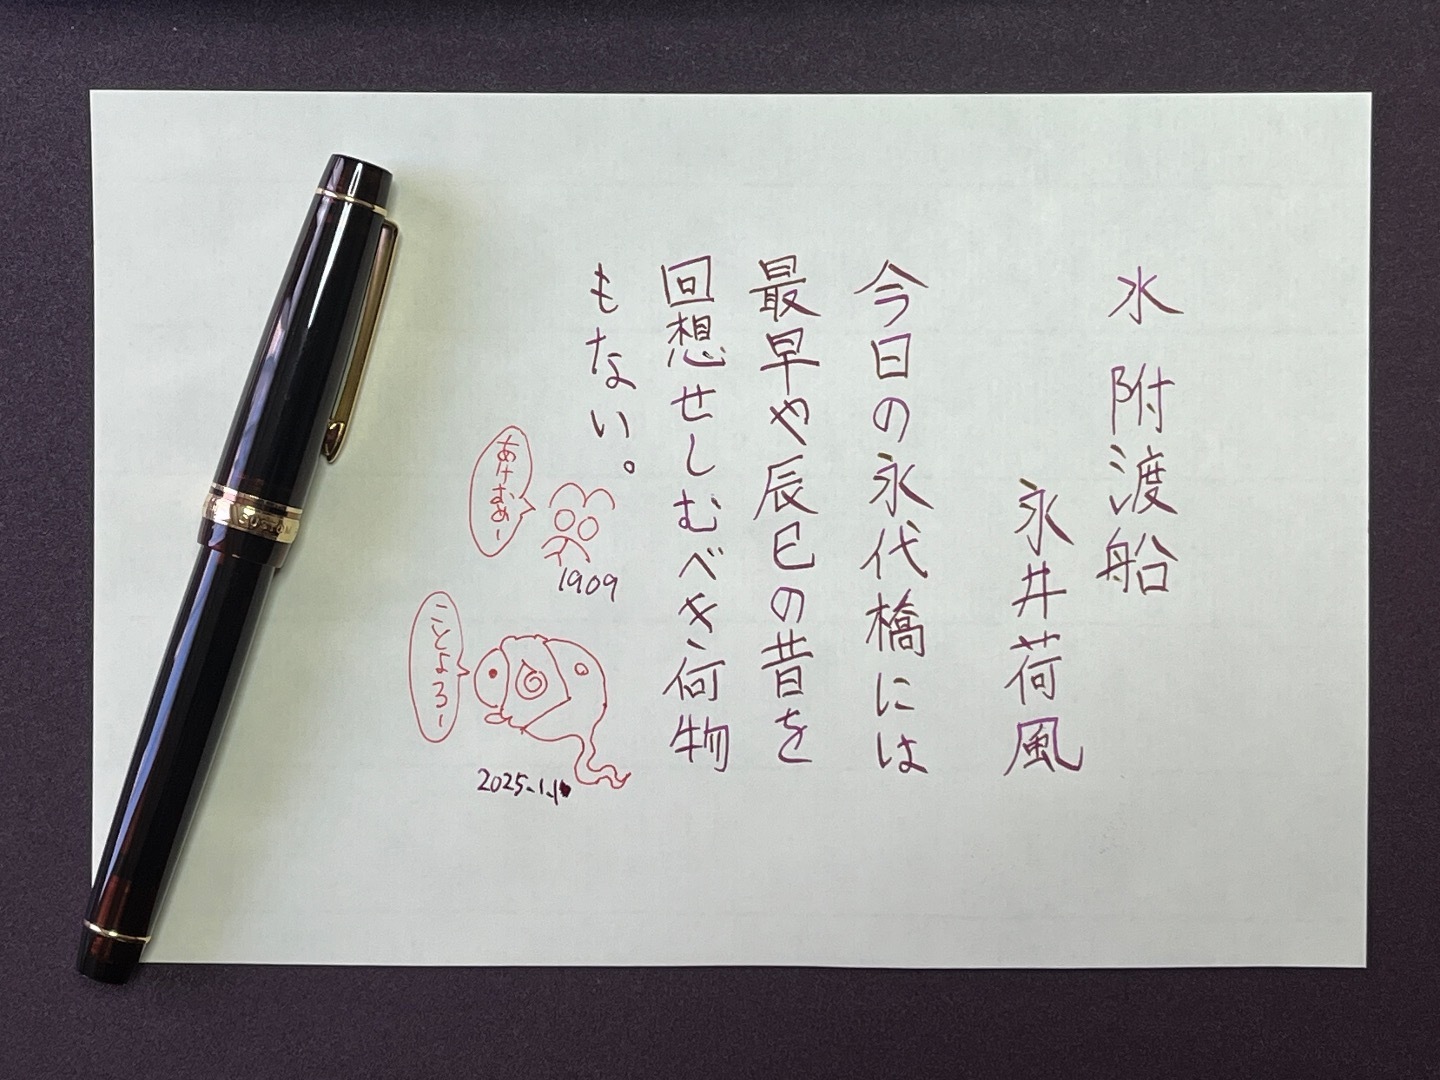 水 附渡船
永井荷風
今日の永代橋には
最早や辰巳の昔を
回想せしむべき何物
もない。
あけおめー
1909
ことよろー
2025.1.1